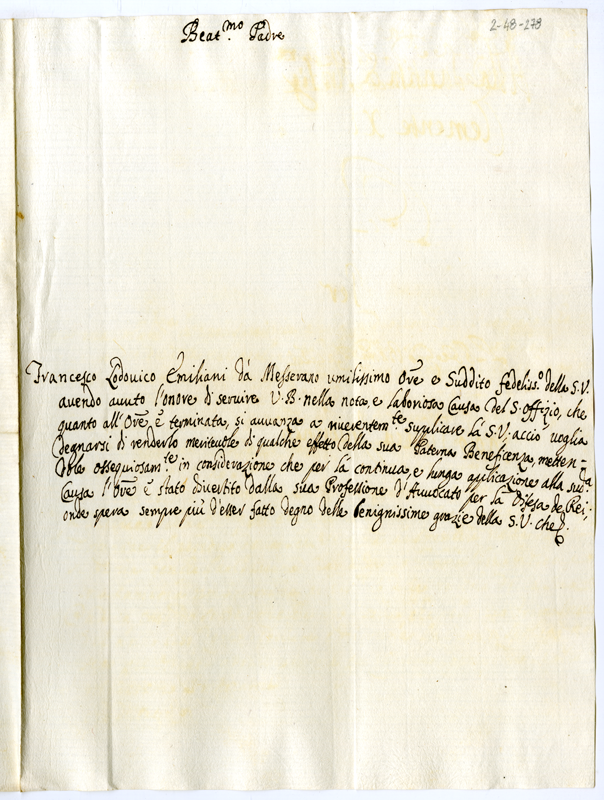 Beat.mo Padre
2-48-278
Francesco Lodovico Emiliani da Messerano umilissimo Ore e Suddito fedeliss.o della S.V.
avendo avuto l'onore di servire V.B. nella nota, e laboriosa Causa del S. Offizio, che
quanto all'Ore è terminata, si avvanza a riverentem.te supplicare la S.V. acciò voglia
degnarsi di renderlo meritevole di qualche effetto della sua Paterna Beneficenza, metten-
dole ossequiosam.te in considerazione che per la continua, e lunga applicazione alla sud.a
Causa l'Ore è stato divertito dalla sua Professione d'Avvocato per la Difesa de Rei;
onde spera sempre più d'esser fatto degno delle benignissime grazie della S.V. che